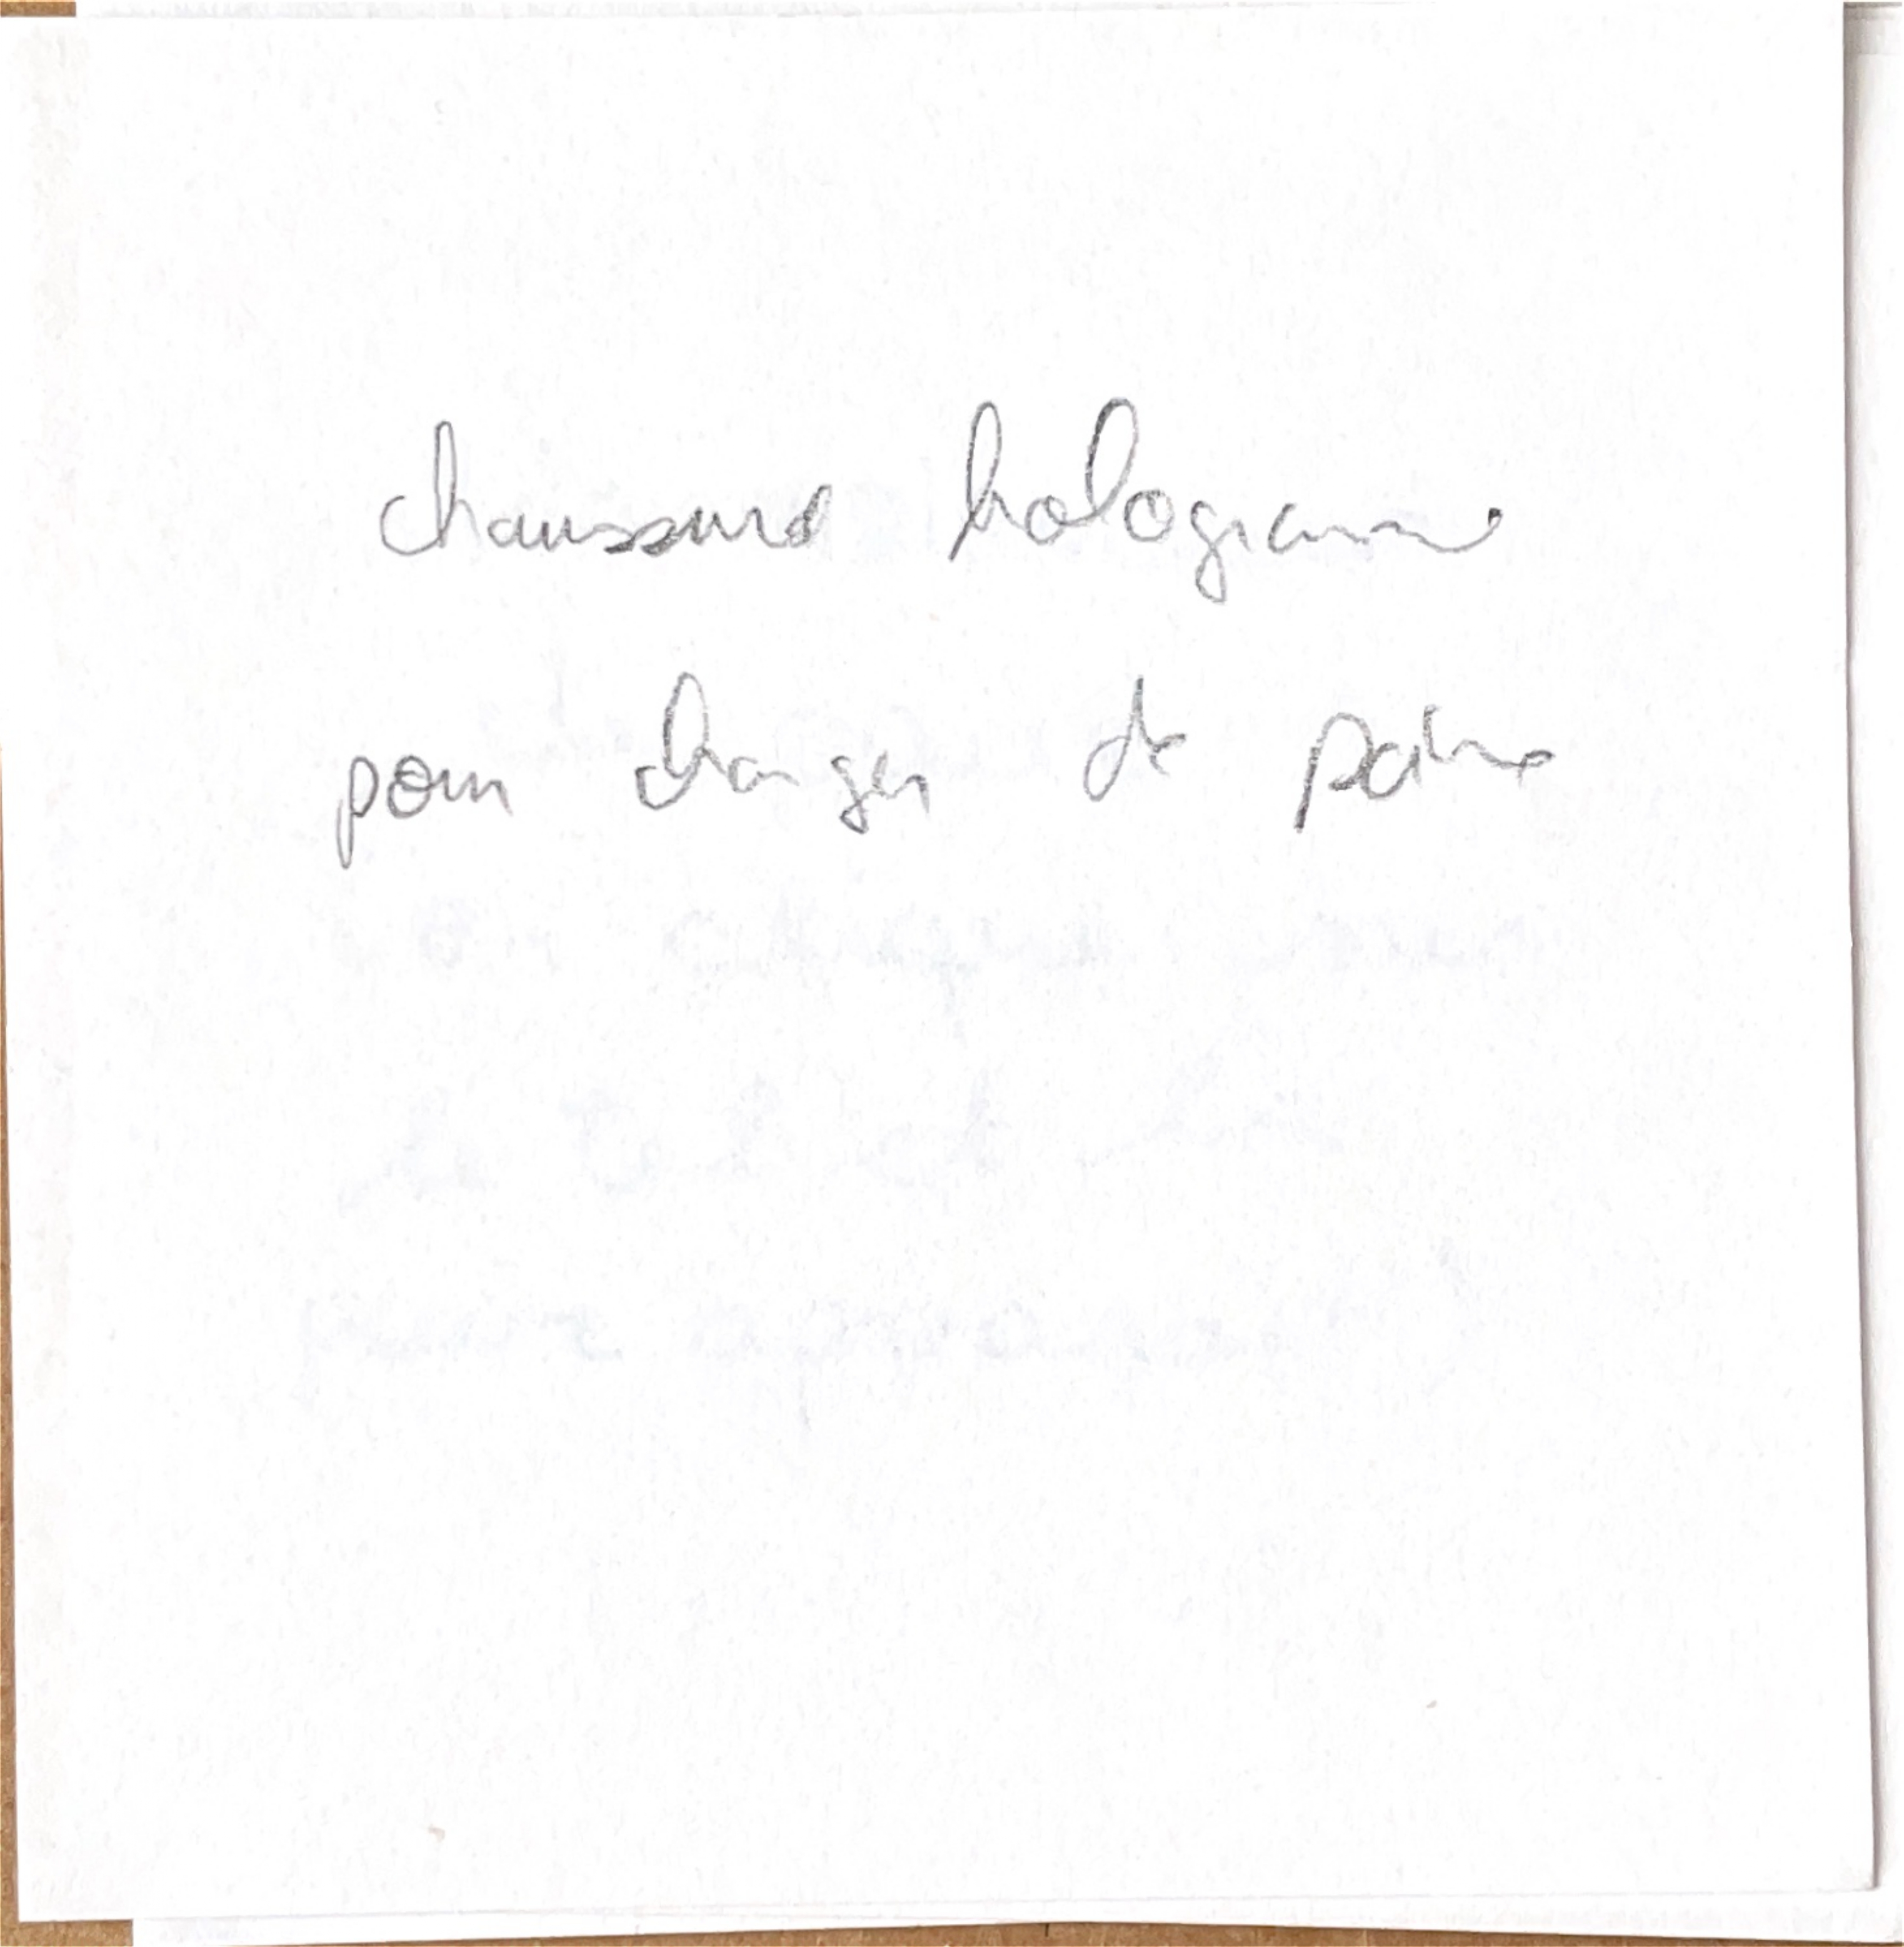 chaussures hologramme
pour changer de paire